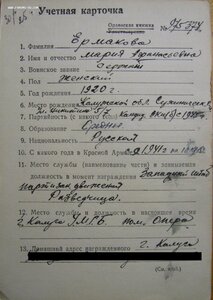 Учетная карточка
Орденская книжка
№ 975374
1. Фамилия Ермакова
2. Имя и отчество Мария Афанасьевна
3. Воинское звание Сержант
4. Пол женский
5. Год рождения 1920 г.
6. Место рождения Калужской обл Сухинический
7. Партийность (с какого года)
8. Образование Среднее
9. Национальность Русская
10. С какого года в Красной Армии с
11. Место службы (наименование части) и занимаемая
должность в момент награждения Западный Штаб
партизан движения
Разведчица.
12. Место службы и должность в настоящее время
г. Калуга пом. Опера
13. Домашний адрес награжденного г. Калуга
(См. на об.)